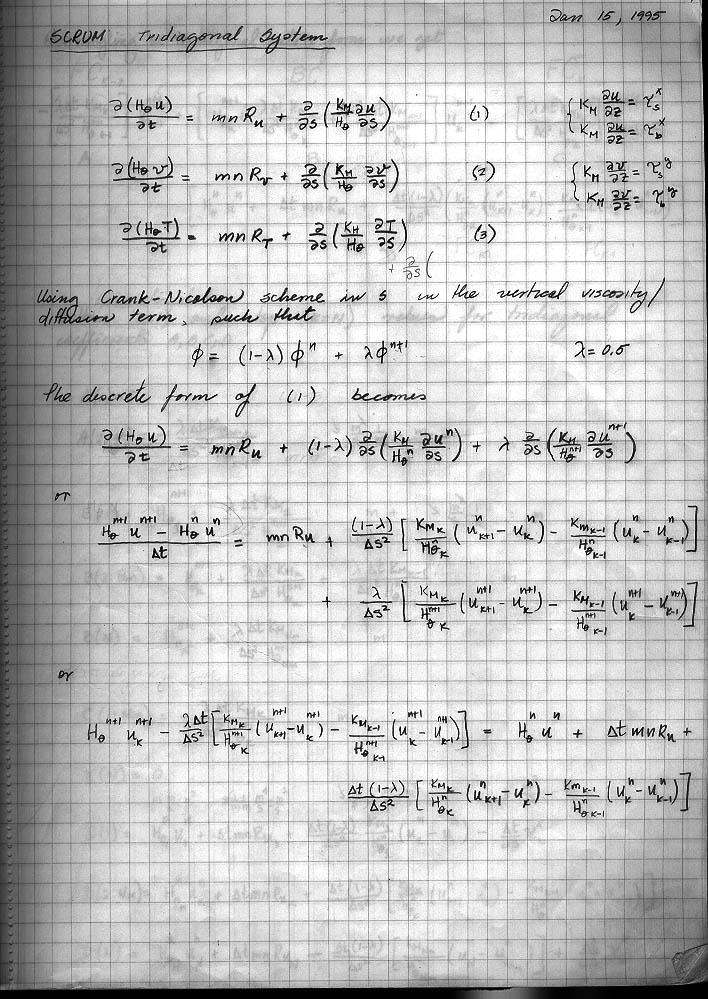 Jan 15, 1995
SCRUM Tridiagonal System
∂(H_θ u)/∂t = mn R_u + ∂/∂s (K_M/H_θ ∂u/∂s) (1) { K_M ∂u/∂z = τ_s^x
K_M ∂u/∂z = τ_b^x
∂(H_θ v)/∂t = mn R_v + ∂/∂s (K_M/H_θ ∂v/∂s) (2) { K_M ∂v/∂z = τ_s^y
K_M ∂v/∂z = τ_b^y
∂(H_θ T)/∂t = mn R_T + ∂/∂s (K_H/H_θ ∂T/∂s) (3)
+ ∂/∂s (
Using Crank-Nicolson scheme in s in the vertical viscosity/
diffusion term, such that
φ = (1-λ) φ^n + λ φ^{n+1} λ = 0.5
The discrete form of (1) becomes
∂(H_θ u)/∂t = mn R_u + (1-λ) ∂/∂s (K_M/H_θ^n ∂u^n/∂s) + λ ∂/∂s (K_M/H_θ^{n+1} ∂u^{n+1}/∂s)
or
(H_θ^{n+1} u^{n+1} - H_θ^n u^n)/Δt = mn R_u + (1-λ)/Δs² [ K_{M_k}/H_{θ_k}^n (u_{k+1}^n - u_k^n) - K_{M_{k-1}}/H_{θ_{k-1}}^n (u_k^n - u_{k-1}^n) ]
+ λ/Δs² [ K_{M_k}/H_{θ_k}^{n+1} (u_{k+1}^{n+1} - u_k^{n+1}) - K_{M_{k-1}}/H_{θ_{k-1}}^{n+1} (u_k^{n+1} - u_{k-1}^{n+1}) ]
or
H_θ^{n+1} u_k^{n+1} - λΔt/Δs² [ K_{M_k}/H_{θ_k}^{n+1} (u_{k+1}^{n+1} - u_k^{n+1}) - K_{M_{k-1}}/H_{θ_{k-1}}^{n+1} (u_k^{n+1} - u_{k-1}^{n+1}) ] = H_θ^n u^n + Δt mn R_u +
Δt(1-λ)/Δs² [ K_{M_k}/H_{θ_k}^n (u_{k+1}^n - u_k^n) - K_{M_{k-1}}/H_{θ_{k-1}}^n (u_k^n - u_{k-1}^n) ]